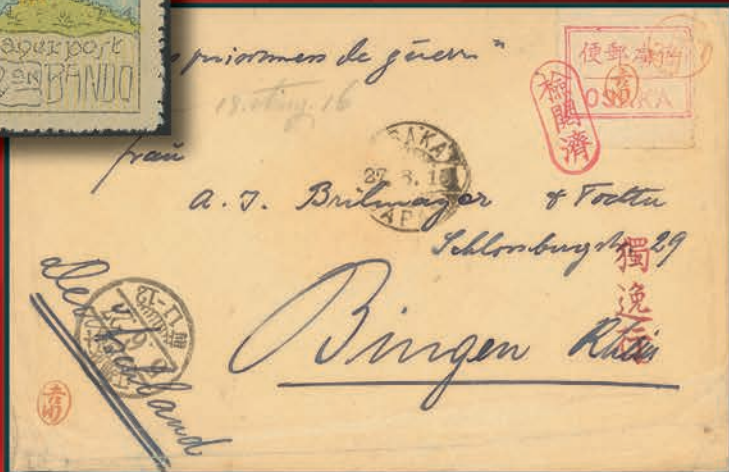 Lagerpost
2 SN BANDO
prisonniers de guerre"
18. Aug. 16
OSAKA
檢閲濟
Frau
OSAKA
27. 8. 16
JAPAN
A. J. Brilmayer & Tochter
Schlossburgstr. 29
獨逸
Bingen Rhein
Deutschland